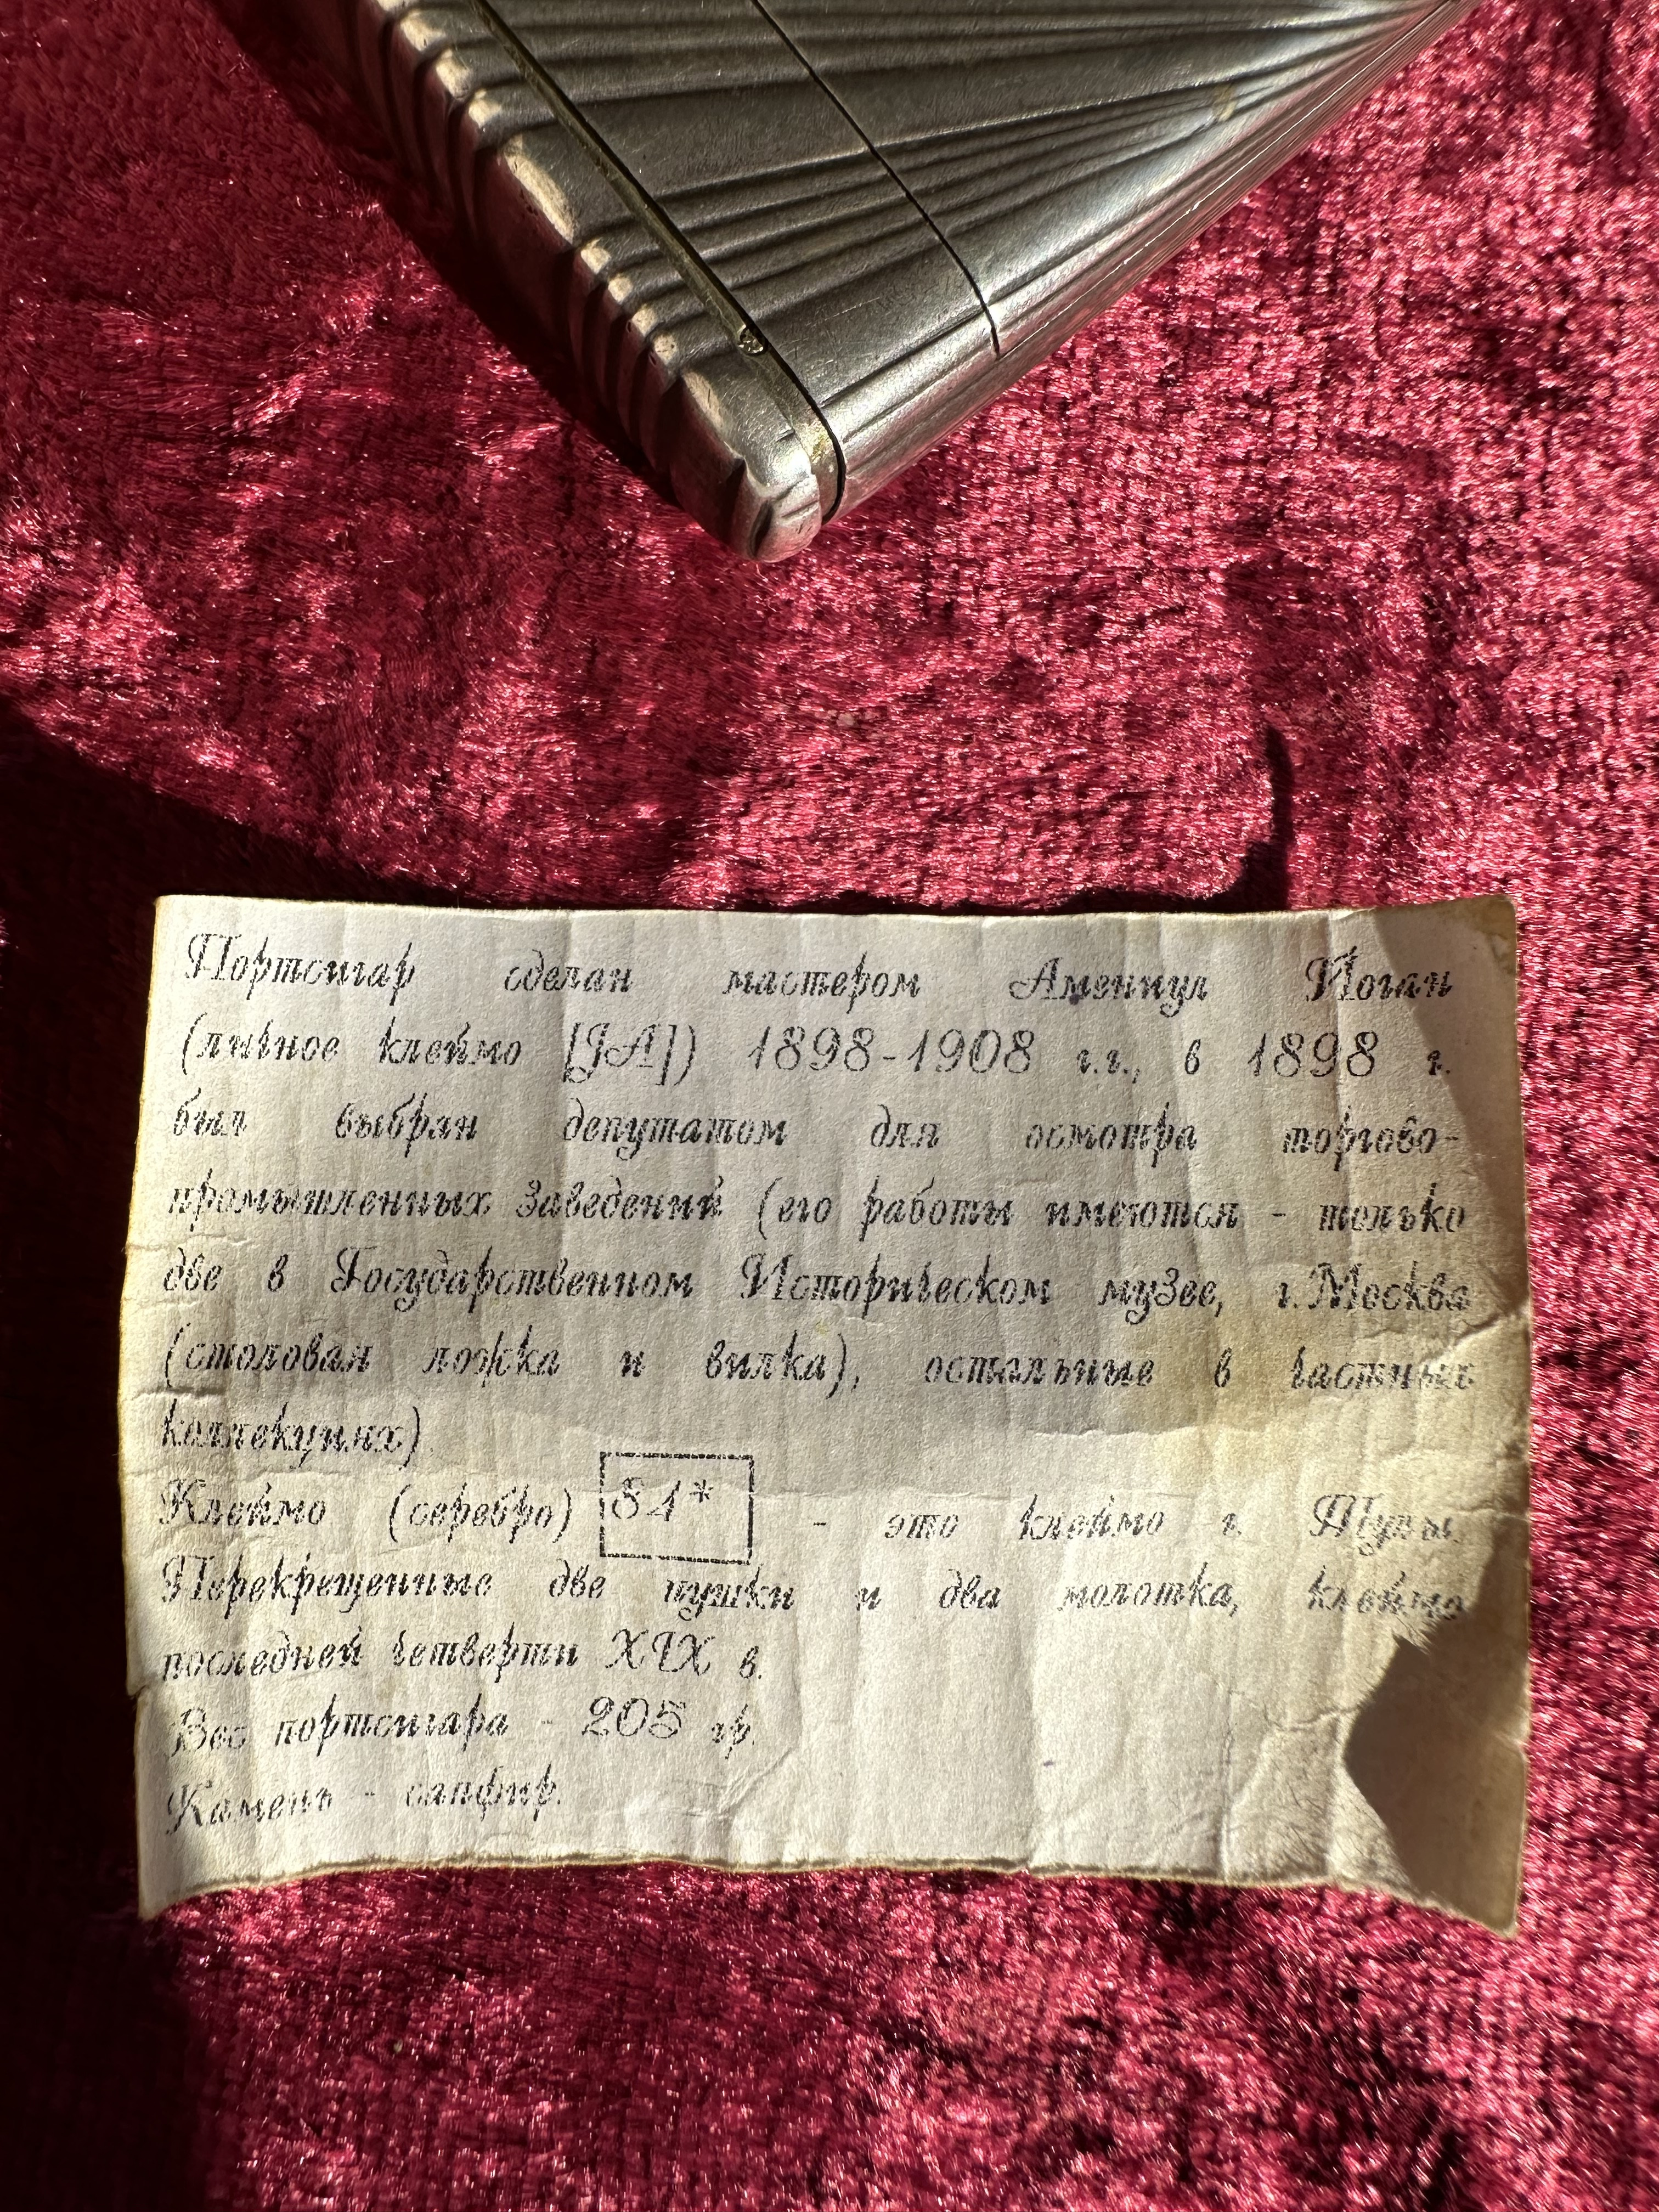 Портсигар сделан мастером Аменнул Йоган
(личное клеймо [JA]) 1898-1908 г.г., в 1898 г.
был выбран депутатом для осмотра торгово-
промышленных заведений (его работы имеются - только
две в Государственном Историческом музее, г.Москва
(столовая ложка и вилка), остальные в частных
коллекциях)
Клеймо (серебро) 84* - это клеймо г. Тулы.
Перекрещенные две пушки и два молотка, клеймо
последней четверти XIX в.
Вес портсигара - 205 гр.
Камень - сапфир.